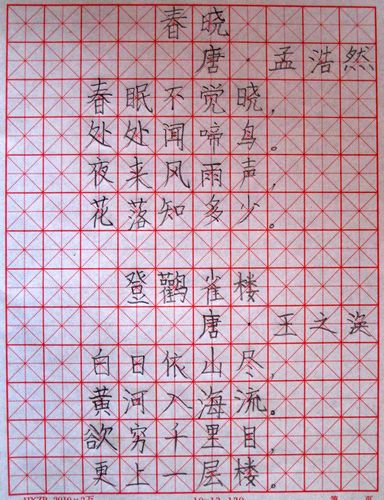 春晓
唐·孟浩然
春眠不觉晓，
处处闻啼鸟。
夜来风雨声，
花落知多少。
登鸛雀楼
唐·王之涣
白日依山尽，
黄河入海流。
欲穷千里目，
更上一层楼。